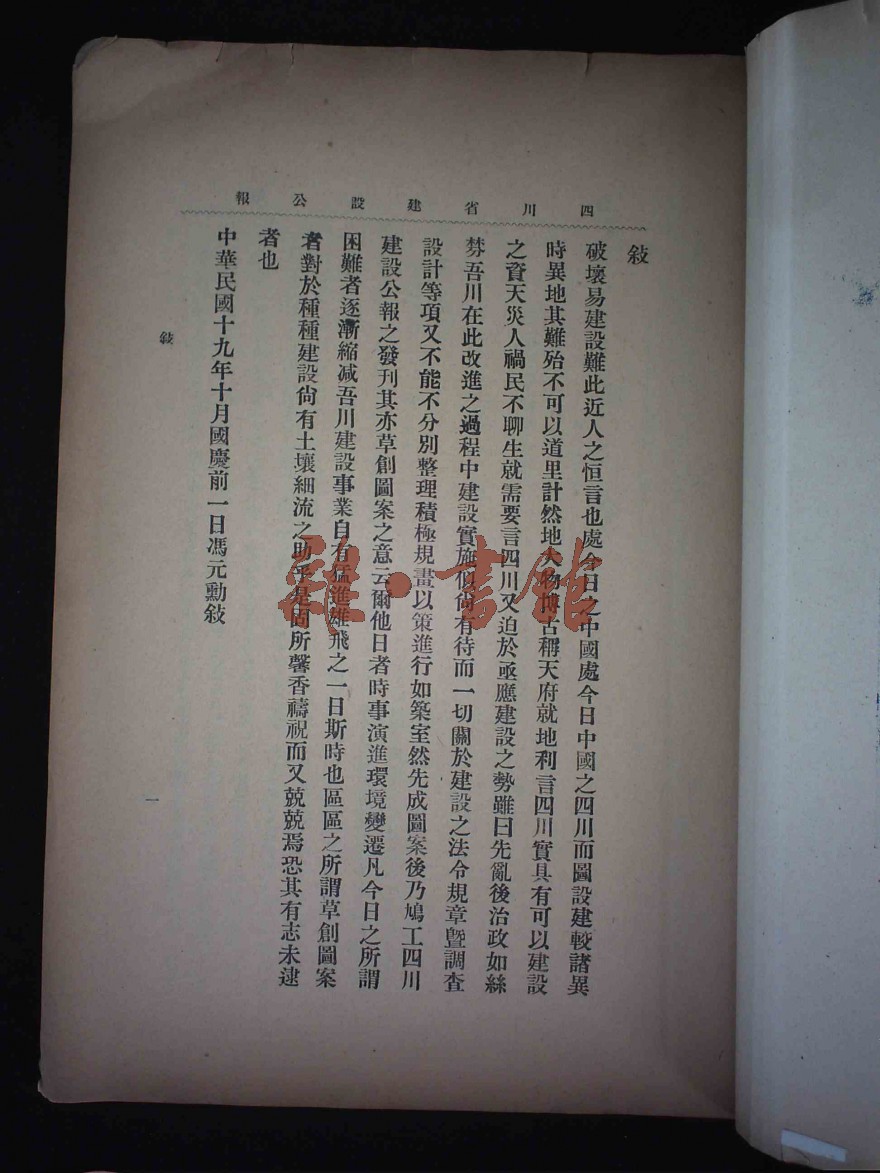 四川省建設公報
敍
破壞易建設難此近人之恒言也處今日之中國處今日中國之四川而圖設建較諸異
時異地其難殆不可以道里計然地大物博古稱天府就地利言四川實具有可以建設
之資天災人禍民不聊生就需要言四川又迫於亟應建設之勢雖曰先亂後治政如絲
棼吾川在此改進之過程中建設實施似尙有待而一切關於建設之法令規章曁調査
設計等項又不能不分別整理積極規畫以策進行如築室然先成圖案後乃鳩工四川
建設公報之發刊其亦草創圖案之意云爾他日者時事演進環境變遷凡今日之所謂
困難者逐漸縮減吾川建設事業自有猛進雄飛之一日斯時也區區之所謂草創圖案
者對於種種建設尙有土壤細流之助乎是固所馨香禱祝而又兢兢焉恐其有志未逮
者也
中華民國十九年十月國慶前一日馮元勳敍
敍
一
雜·書館